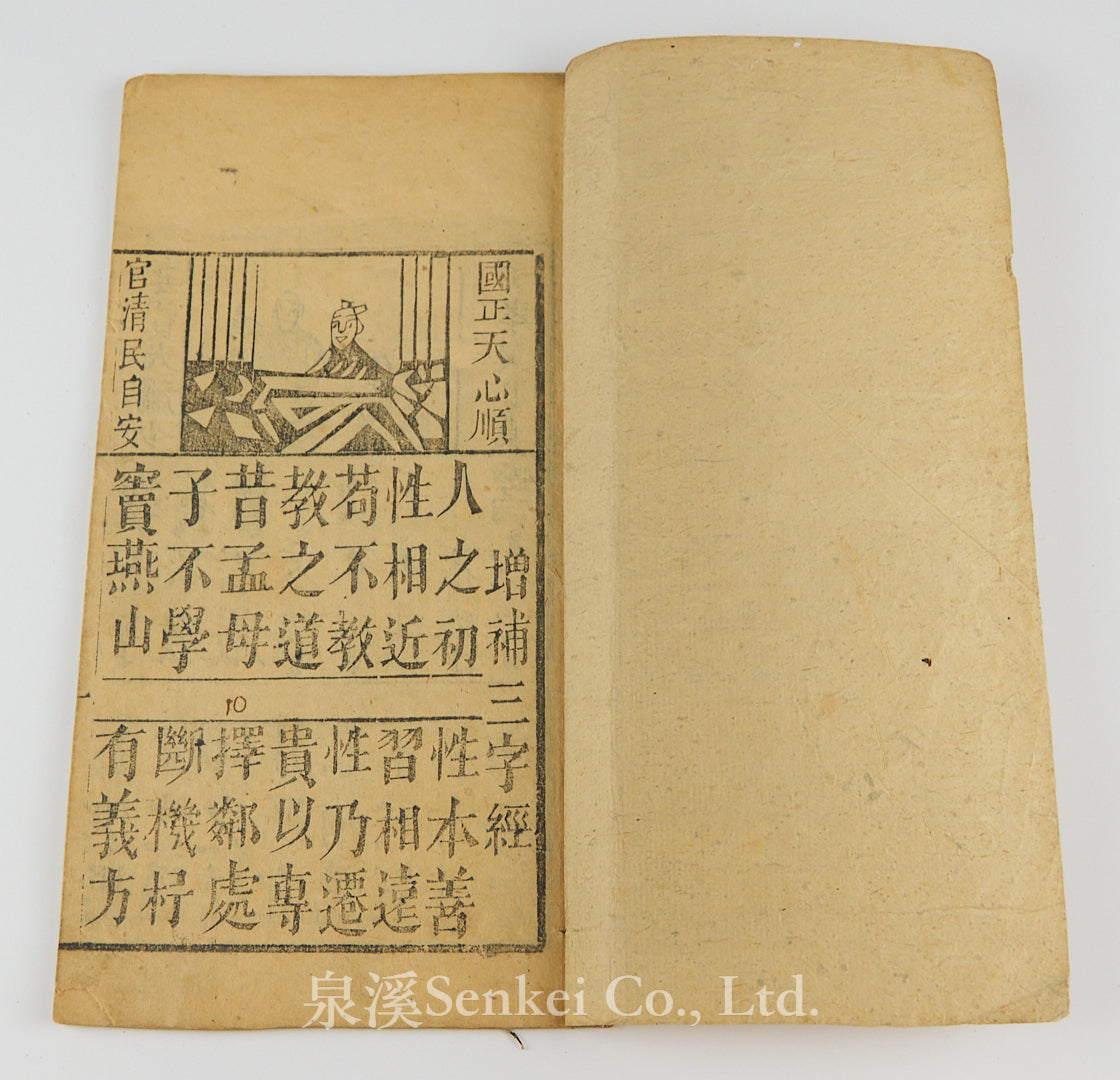 國正天心順
官清民自安
增補三字經
人之初
性本善
性相近
習相遠
苟不教
性乃遷
教之道
貴以專
昔孟母
擇鄰處
子不學
斷機杼
竇燕山
有義方
10
泉溪Senkei Co., Ltd.